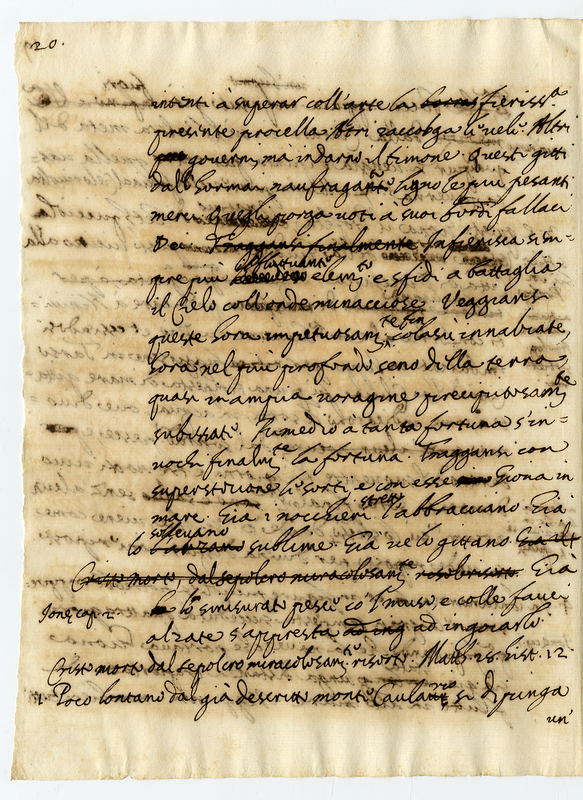 20.
intenti à superar coll'arte la fieriss.a
presente procella. Altri raccolga li veli. Altri
governi, mà indarno il timone. Questi gitti
dall'hormai naufragante ligno le più pesanti
merci. Quegli porga voti a suoi sordi fallaci
Dei. Traggansi finalmente Infierisca sem=
pre più elem.to e sfidi a battaglia
il Cielo coll'onde minacciose. Veggansi
queste hora impetuosam.te fin colasù innalzate,
hora nel più profondo seno della terra
quasi in ampia voragine precipitosam.te
subissate. Rimedio à tanta fortuna s'in=
vochi finalm.te la fortuna. Traggansi con
superstitione le sorti, e con esse Giona in
mare. Già i nocchieri stretto l'abbracciano. Già
sollevano
lo sublime. Già ve lo gittano. Già il
Cristo morto, dal sepolcro miracolosam.te risorto. Già
Jone cap. 2. lo smisurato pesce co'l muso, e colle fauci
alzate s'appresta ad ing ad ingoiarlo.
Cristo morto dal sepolcro miracolosam.te risorto. Matth. 28. hist. 12.
Poco lontano dal già descritto monte si dipinga
un'